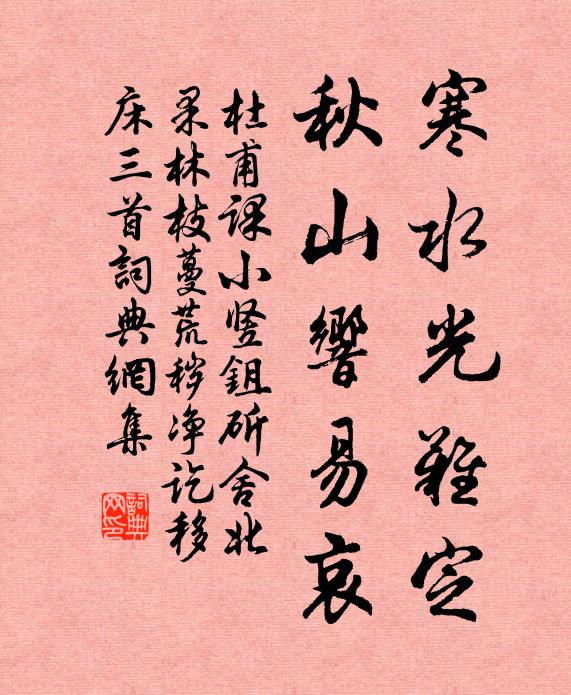 寒水光難定
秋山響易哀
杜甫課小竖鉏斫舍北
果林枝蔓荒秽净讫移
床三首詞典網集
詞典网印